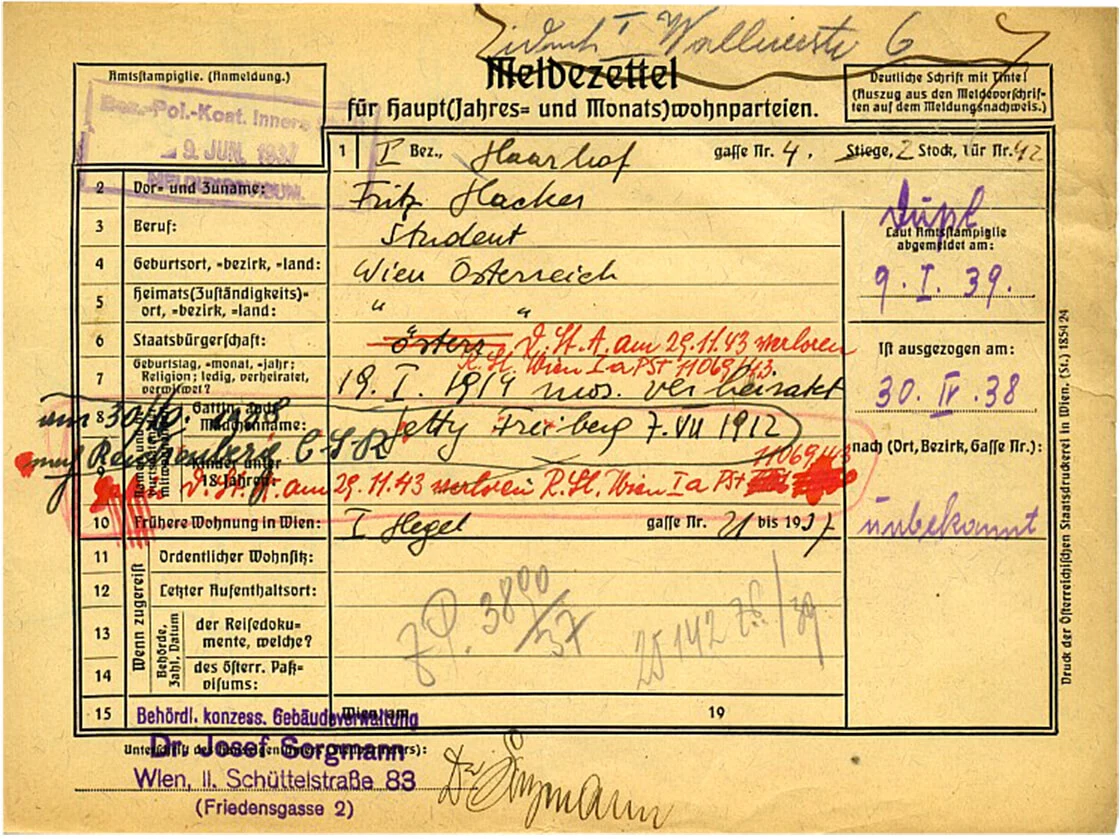 I Wallnerstr 6
Meldezettel
für Haupt(Jahres- und Monats)wohnparteien.
Amtsstampiglie. (Anmeldung.)
Deutliche Schrift mit Tinte!
(Auszug aus den Meldevorschrif-
ten auf dem Meldungsnachweis.)
Bez.-Pol.-Koat. Innere
9. JUN. 1937
1 I Bez., Haarhof gasse Nr. 4. Stiege, 2 Stock, Tür Nr. 42
2 Vor- und Zuname: Fritz Hacker
3 Beruf: Student
4 Geburtsort, -bezirk, -land: Wien Österreich
5 Heimats(Zuständigkeits)-
ort, -bezirk, -land: " "
6 Staatsbürgerschaft: Österr. D. St. A. am 29.11.43 verloren
R. St. Wien I a PSt 11069/43.
7 Geburtstag, -monat, -jahr;
Religion; ledig, verheiratet,
verwitwet? 19. I. 1914 mos. verheiratet
8 Gattin, auch
Mädchenname: Jetty Freiberg 7. VII 1912
am 30/10. 1938
nach Reichenberg C S R
9 Kinder unter
18 Jahren: D. St. A. am 29.11.43 verloren R. St. Wien I a PSt
11069/43
10 Frühere Wohnung in Wien: I Hegel gasse Nr. 21 bis 1937
Wenn zugereist
11 Ordentlicher Wohnsitz:
12 Letzter Aufenthaltsort:
Behörde,
Zahl, Datum
13 der Reisedoku-
mente, welche?
14 des österr. Paß-
visums:
P. 3890/37
25142 /39
15 Wien, am 19
Laut Amtsstampiglie
abgemeldet am:
9. I. 39.
Ist ausgezogen am:
30. IV. 38
nach (Ort, Bezirk, Gasse Nr.):
unbekannt
Druck der Österreichischen Staatsdruckerei in Wien. (St.) 1854 24
Behördl. konzess. Gebäudeverwaltung
Dr. Josef Sorgmann
Wien, II. Schüttelstraße 83
(Friedensgasse 2)
Dr Sorgmann